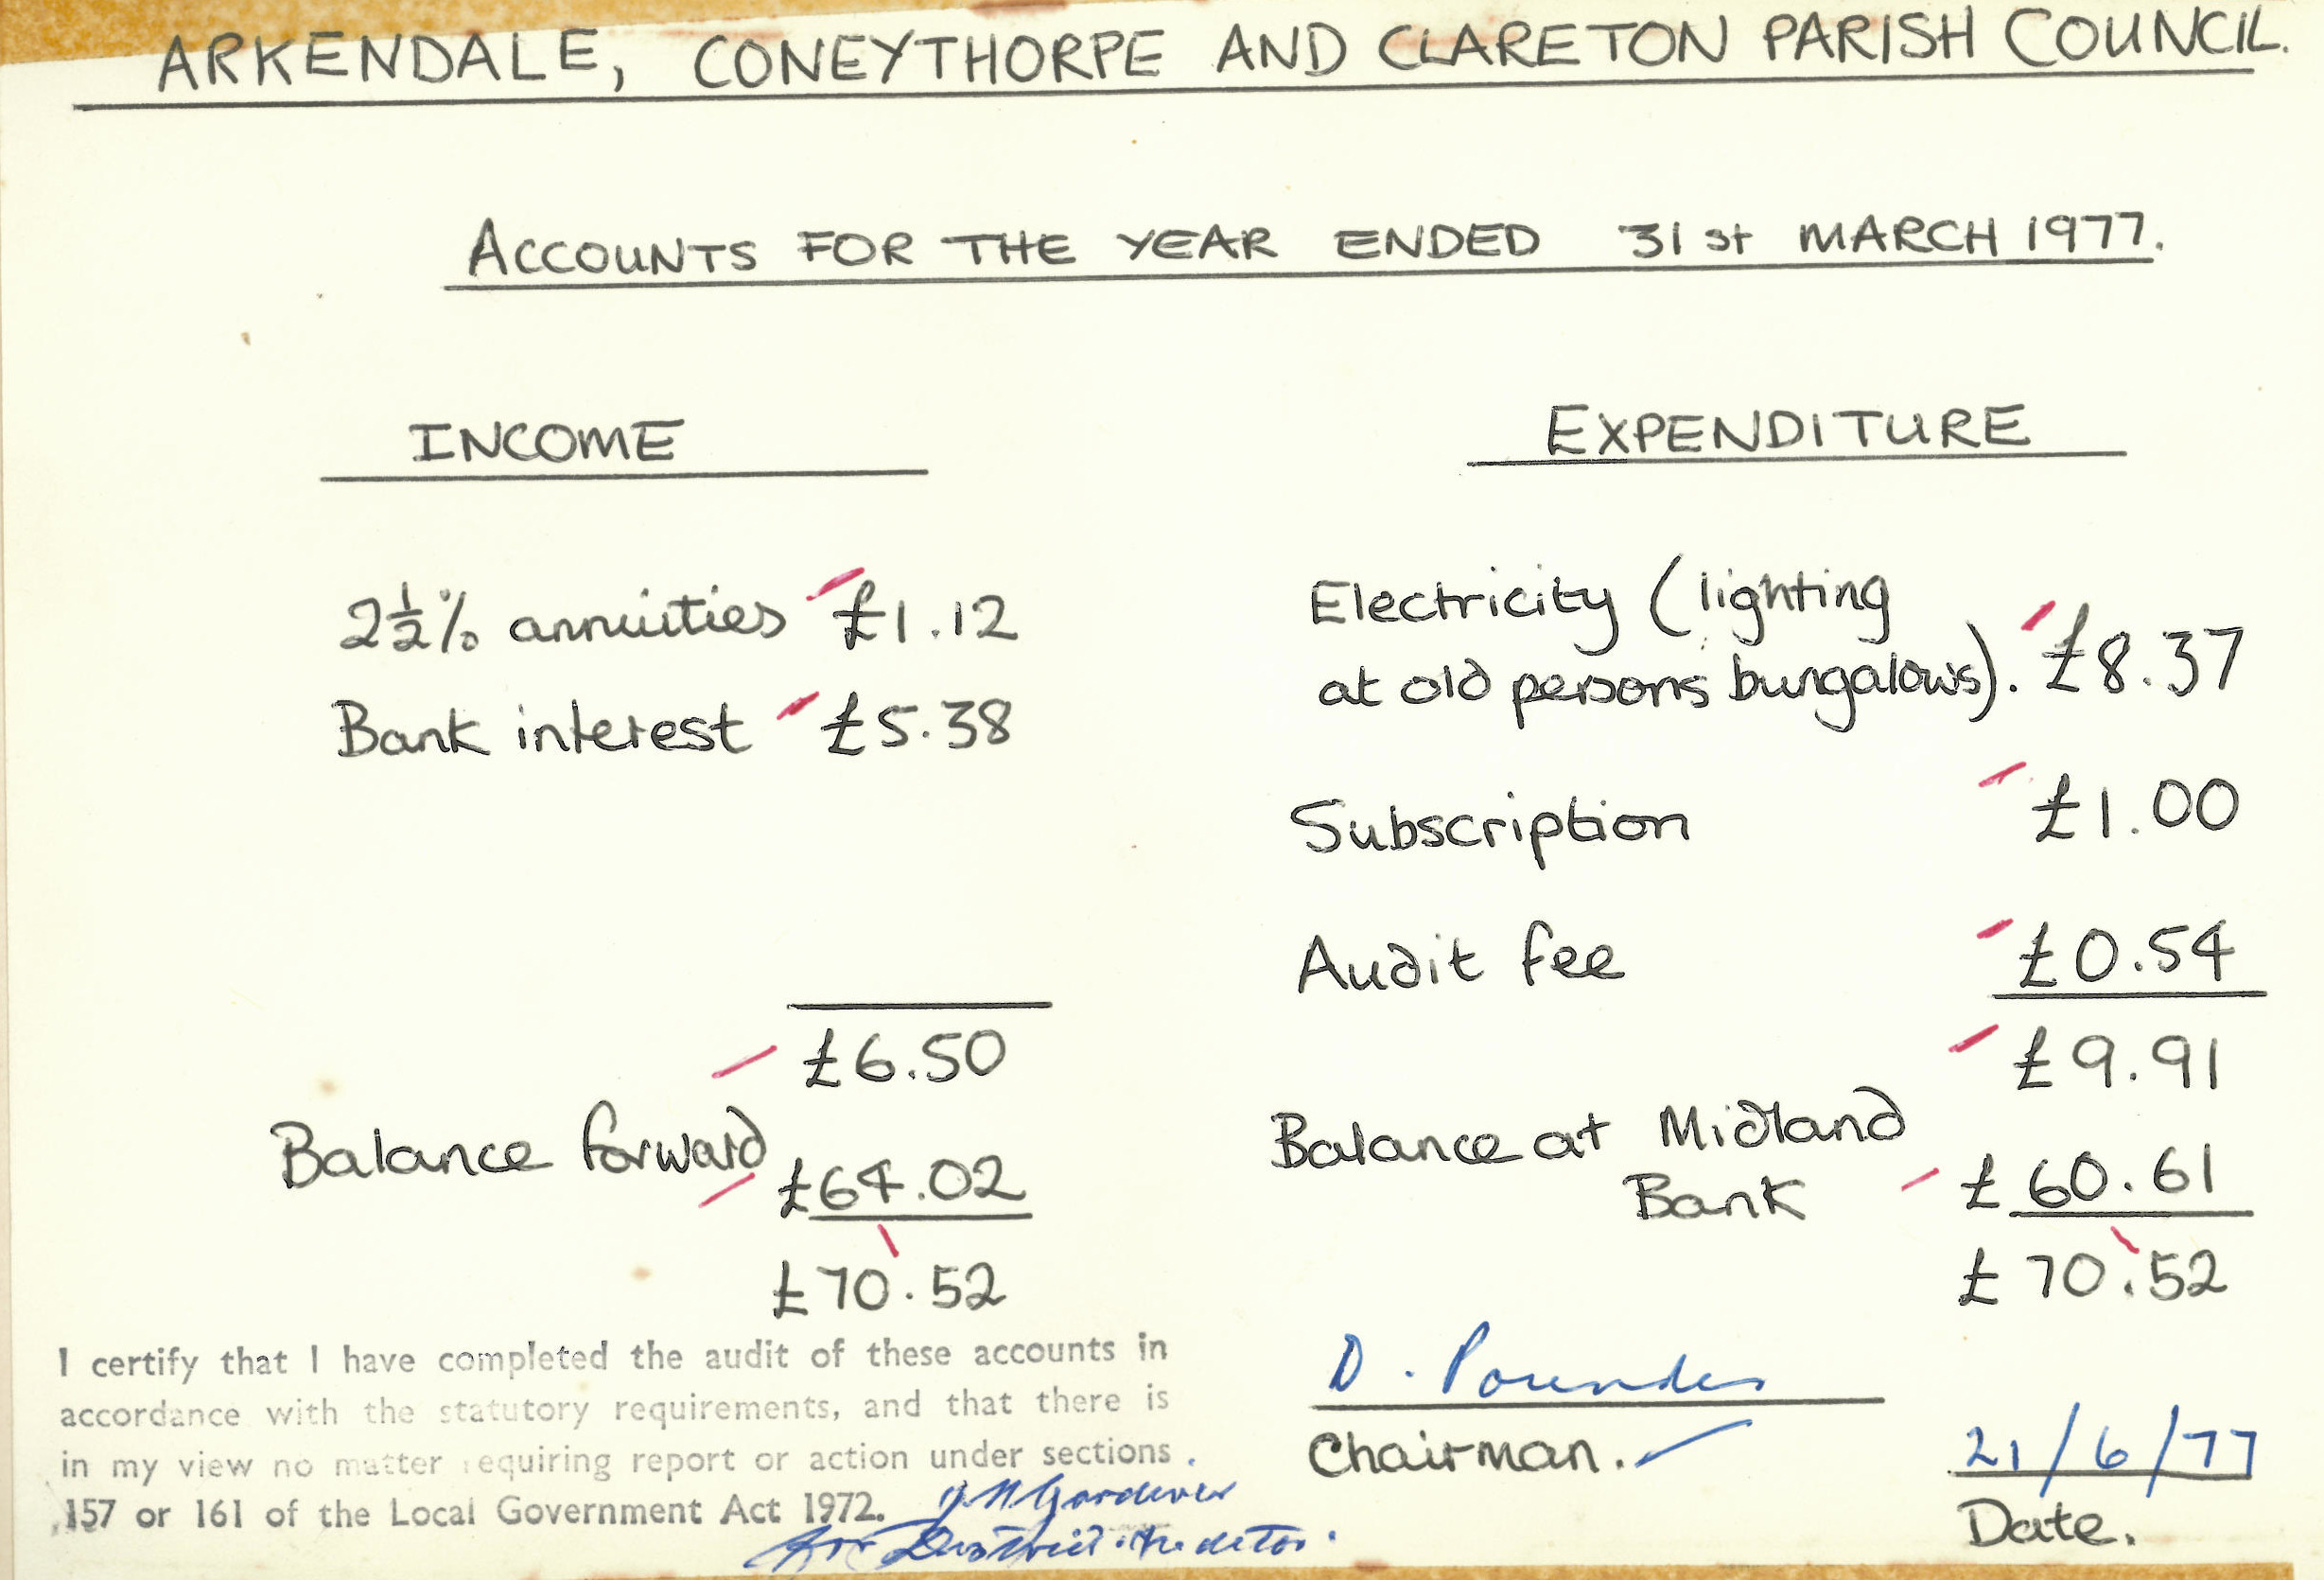 ARKENDALE, CONEYTHORPE AND CLARETON PARISH COUNCIL.
ACCOUNTS FOR THE YEAR ENDED 31st MARCH 1977.
INCOME
2½% annuities £1.12
Bank interest £5.38
£6.50
Balance forward £64.02
£70.52
EXPENDITURE
Electricity (lighting
at old persons bungalows). £8.37
Subscription £1.00
Audit fee £0.54
£9.91
Balance at Midland
Bank £60.61
£70.52
I certify that I have completed the audit of these accounts in
accordance with the statutory requirements, and that there is
in my view no matter requiring report or action under sections
157 or 161 of the Local Government Act 1972.
Gardener
for District Auditor.
D. Pounder
Chairman.
21/6/77
Date.